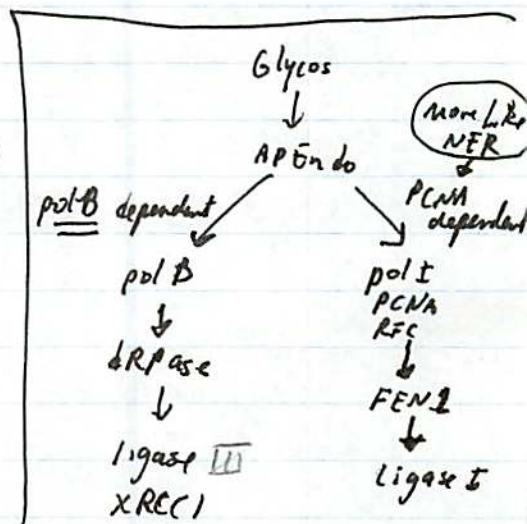 Glycos
AP Endo
more like
NER
PCNA
dependent
pol B dependent
pol B
dRPase
ligase III
XRCC1
pol I
PCNA
RFC
FEN1
Ligase I